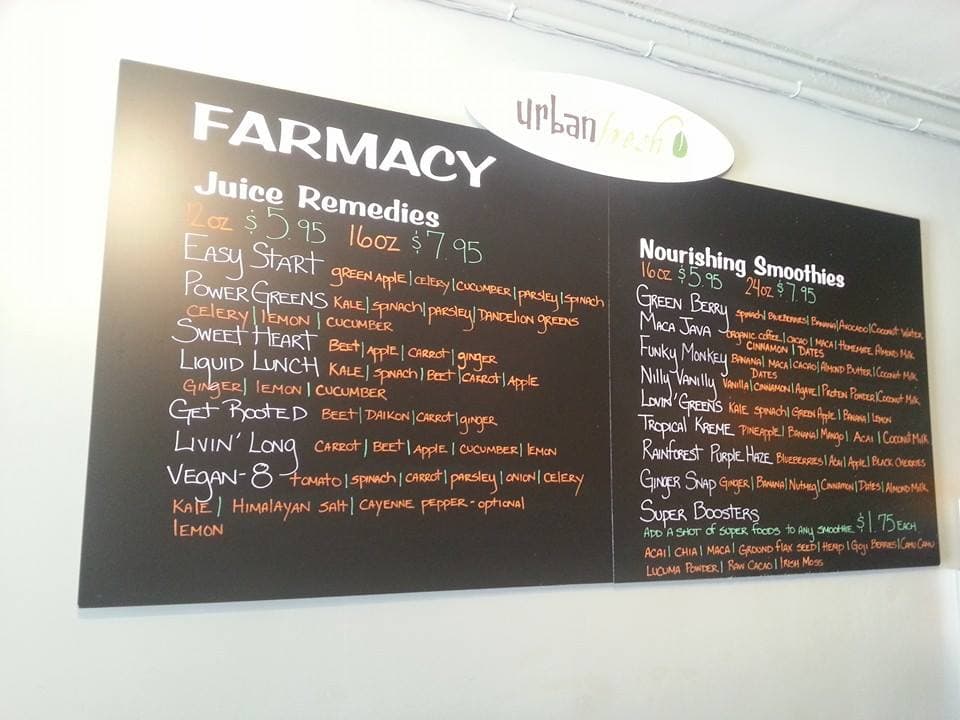 urbanfresh
FARMACY
Juice Remedies
12oz $5.95 16oz $7.95
EASY START GREEN APPLE | CELERY | CUCUMBER | PARSLEY | SPINACH
POWER GREENS KALE | SPINACH | PARSLEY | DANDELION GREENS
CELERY | LEMON | CUCUMBER
SWEET HEART BEET | APPLE | CARROT | GINGER
LIQUID LUNCH KALE | SPINACH | BEET | CARROT | APPLE
GINGER | LEMON | CUCUMBER
GET ROOTED BEET | DAIKON | CARROT | GINGER
LIVIN' LONG CARROT | BEET | APPLE | CUCUMBER | LEMON
VEGAN-8 TOMATO | SPINACH | CARROT | PARSLEY | ONION | CELERY
KALE | HIMALAYAN SALT | CAYENNE PEPPER - OPTIONAL
LEMON
Nourishing Smoothies
16oz $5.95 24oz $7.95
GREEN BERRY SPINACH | BLUEBERRIES | BANANA | AVOCADO | COCONUT WATER
MACA JAVA ORGANIC COFFEE | CACAO | MACA | HOMEMADE ALMOND MILK
CINNAMON | DATES
FUNKY MONKEY BANANA | MACA | CACAO | ALMOND BUTTER | COCONUT MILK
DATES
NILLY VANILLY VANILLA | CINNAMON | AGAVE | PROTEIN POWDER | COCONUT MILK
LOVIN' GREENS KALE SPINACH | GREEN APPLE | BANANA | LEMON
TROPICAL KREME PINEAPPLE | BANANA | MANGO | ACAI | COCONUT MILK
RAINFOREST PURPLE HAZE BLUEBERRIES | ACAI | APPLE | BLACK CHERRIES
GINGER SNAP GINGER | BANANA | NUTMEG | CINNAMON | DATES | ALMOND MILK
SUPER BOOSTERS
ADD A SHOT OF SUPER FOODS TO ANY SMOOTHIE $1.75 EACH
ACAI | CHIA | MACA | GROUND FLAX SEED | HEMP | GOJI BERRIES | CAMU CAMU
LUCUMA POWDER | RAW CACAO | IRISH MOSS